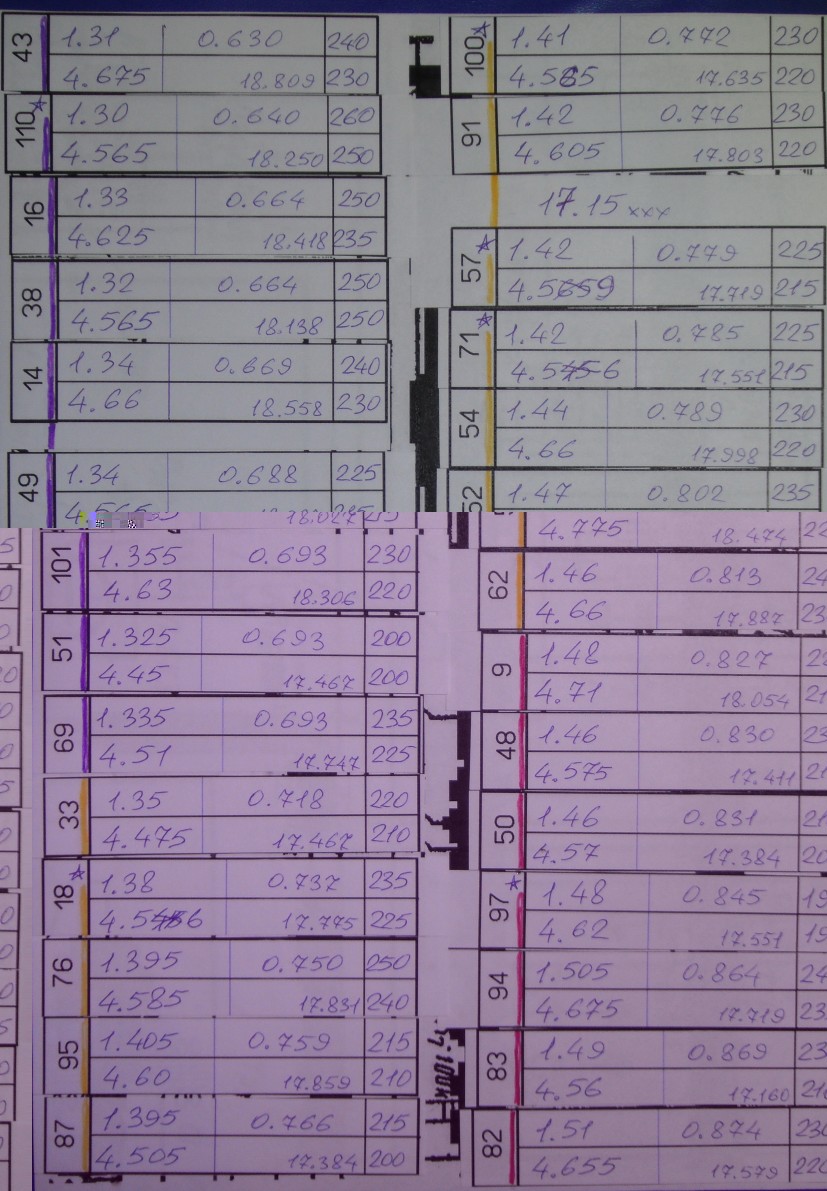 43
1.31 0.630 240
4.675 18.809 230
110*
1.30 0.640 260
4.565 18.250 250
16
1.33 0.664 250
4.625 18.418 235
38
1.32 0.664 250
4.565 18.138 250
14
1.34 0.669 240
4.66 18.558 230
49
1.34 0.688 225
101
1.355 0.693 230
4.63 18.306 220
51
1.325 0.693 200
4.45 17.467 200
69
1.335 0.693 235
4.51 17.747 225
33
1.35 0.718 220
4.475 17.467 210
18*
1.38 0.737 235
17.775 225
76
1.395 0.750 250
4.585 17.831 240
95
1.405 0.759 215
4.60 17.859 210
87
1.395 0.766 215
4.505 17.384 200
100*
1.41 0.772 230
17.635 220
91
1.42 0.776 230
4.605 17.803 220
17.15 xxx
57*
1.42 0.779 225
17.719 215
71*
1.42 0.785 225
17.551 215
54
1.44 0.789 230
4.66 17.998 220
52
1.47 0.802 235
4.775 18.474
62
1.46 0.813
4.66 17.887
9
1.48 0.827
4.71 18.054
48
1.46 0.830
4.575 17.411
50
1.46 0.831
4.57 17.384
97*
1.48 0.845
4.62 17.551
94
1.505 0.864
4.675 17.719
83
1.49 0.869
4.56 17.160
82
1.51 0.874
4.655 17.579